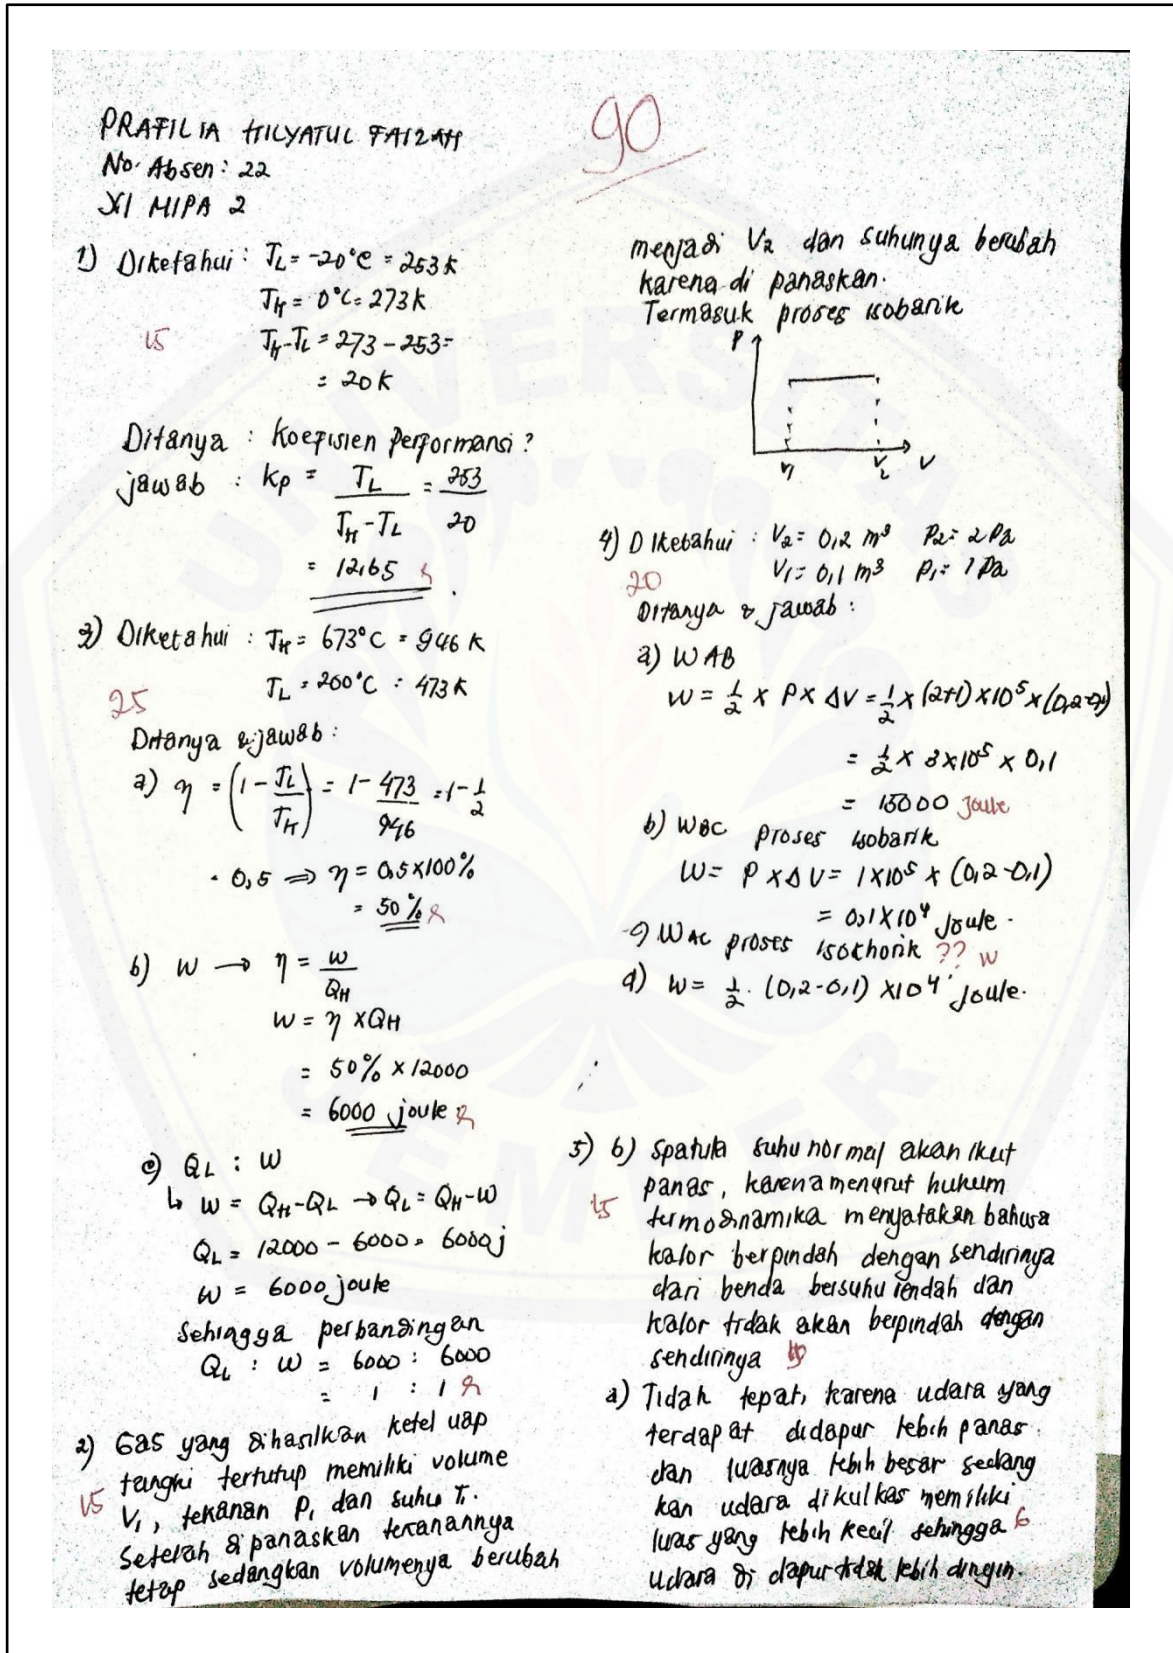 PRAFILIA HILYATUL FAIZAH
No. Absen : 22
XI MIPA 2
90
1) Diketahui : TL = -20°C = 253 K
TH = 0°C = 273 K
15
TH - TL = 273 - 253 =
= 20 K
Ditanya : Koefisien Performansi ?
jawab : Kp = TL / (TH - TL) = 253 / 20
= 12,65
3) Diketahui : TH = 673°C = 946 K
TL = 200°C = 473 K
25
Ditanya & jawab :
a) η = (1 - TL/TH) = 1 - 473/946 = 1 - 1/2
= 0,5 ⇒ η = 0,5 x 100%
= 50%
b) W → η = W/QH
W = η x QH
= 50% x 12000
= 6000 joule
c) QL : W
↳ W = QH - QL → QL = QH - W
QL = 12000 - 6000 = 6000 j
W = 6000 joule
Sehingga perbandingan
QL : W = 6000 : 6000
= 1 : 1
2) Gas yang dihasilkan ketel uap
tangki tertutup memiliki volume
15
V1, tekanan P1 dan suhu T1.
Setelah dipanaskan tekanannya
tetap sedangkan volumenya berubah
menjadi V2 dan suhunya berubah
karena di panaskan.
Termasuk proses isobarik
P
V1 V2 V
4) Diketahui : V2 = 0,2 m³ P2 = 2 Pa
V1 = 0,1 m³ P1 = 1 Pa
20
Ditanya & jawab :
a) WAB
W = 1/2 x P x ΔV = 1/2 x (2+1) x 10⁵ x (0,2-0,1)
= 1/2 x 3x10⁵ x 0,1
= 15000 Joule
b) WBC proses isobarik
W = P x ΔV = 1x10⁵ x (0,2-0,1)
= 0,1x10⁴ joule.
c) WAC proses isokhorik ?? W
d) W = 1/2 . (0,2-0,1) x10⁴ joule.
5) b) Spatula suhu normal akan ikut
panas, karena menurut hukum
15
termodinamika menyatakan bahwa
kalor berpindah dengan sendirinya
dari benda bersuhu rendah dan
kalor tidak akan berpindah dengan
sendirinya
a) Tidak tepat, karena udara yang
terdapat didapur lebih panas.
dan luasnya lebih besar sedang
kan udara dikulkas memiliki
luas yang lebih kecil sehingga
udara di dapur tidak lebih dingin.
UNIVERSITAS
JEMBER